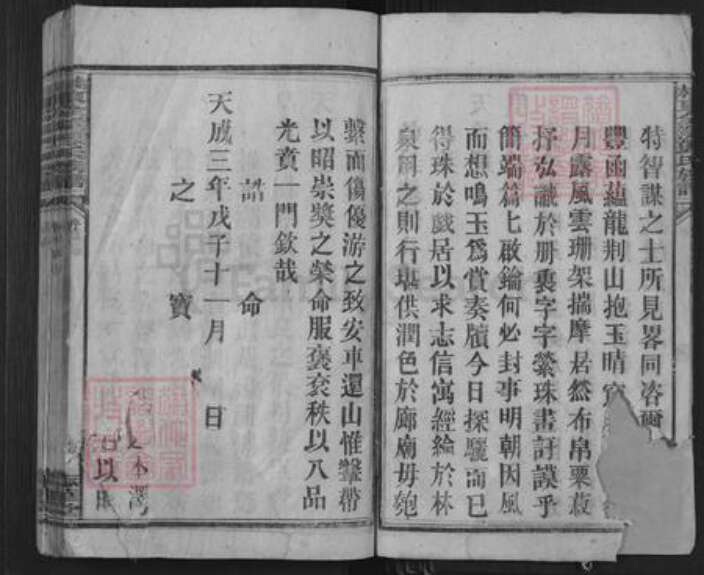 特智謀之士所見畧同咨爾
豐函蘊龍荆山抱玉晴窗
月露風雲珊架揣摩居然布帛粟菽
抒弘議於册裏字字縈珠畫訏謨乎
簡端篇匕啟鑰何必封事明朝因風
而想鳴玉爲賞奏牘今日探驪而已
得珠於戲居以求志信寓經綸於林
泉用之則行堪供潤色於廊廟毋匏
繫而傷優游之致安車還山惟鞶帶
以昭崇奬之榮命服褒衮秩以八品
光賁一門欽哉
誥命
天成三年戊子十一月 日
之寶